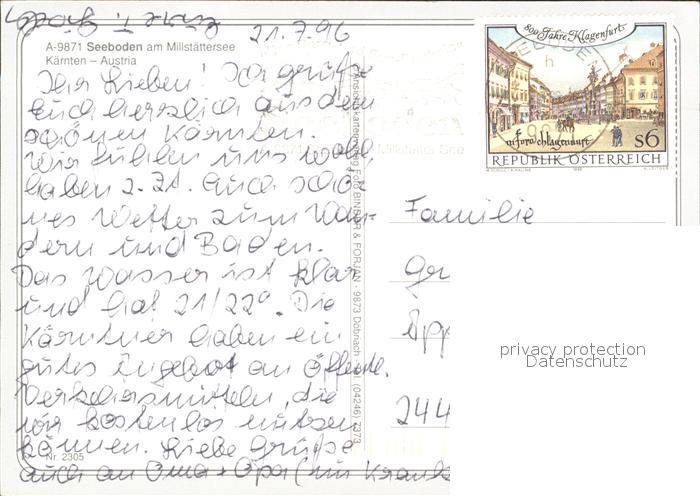 21.7.96
A-9871 Seeboden am Millstättersee
Kärnten – Austria
Ihr Lieben! Ich grüße
Euch herzlich aus dem
schönen Kärnten.
Wir fühlen uns wohl,
haben z. Zt. auch schö-
nes Wetter zum Wan-
dern und Baden.
Das Wasser ist klar
und hat 21/22°. Die
Kärntner haben ein
gutes Angebot an öffentl.
Verkehrsmitteln, die
wir kostenlos nutzen
können. Liebe Grüße
auch an Oma + Opa (im Krank
Nr. 2305
Ansichtskartenverlag Foto BINDER & FORJAN - 9873 Döbriach Tel. (04246) 7373
800 Jahre Klagenfurt
in foro chlagenfurt
s6
REPUBLIK ÖSTERREICH
Familie
Gr
App
244
privacy protection
Datenschutz